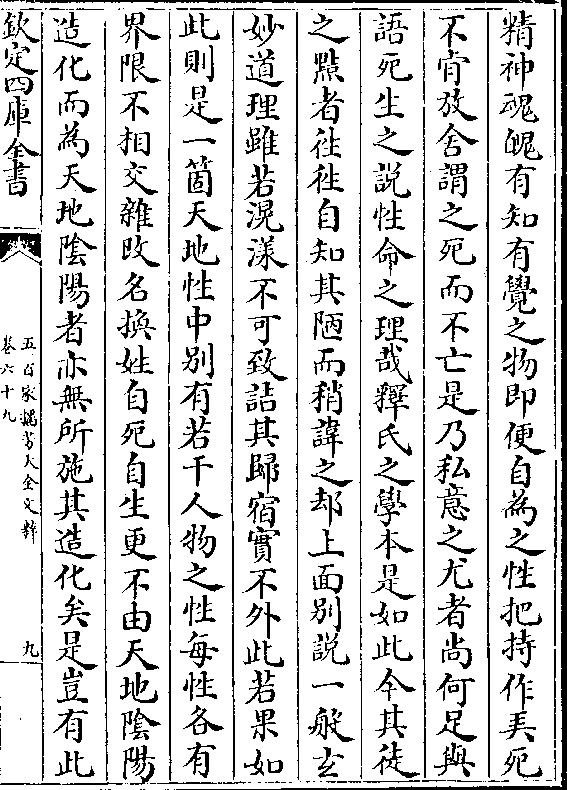 精神魂魄有知有覺之物即便自為之性把持作弄死
不肯放舍謂之死而不亡是乃私意之尤者尚何足與
語死生之説性命之理哉釋氏之學本是如此今其徒
之黠者往往自知其陋而稍諱之却上面别説一般玄
妙道理雖若滉漾不可致詰其歸宿實不外此若果如
此則是一箇天地性中别有若干人物之性每性各有
界限不相交雜改名換姓自死自生更不由天地隂陽
造化而為天地隂陽者亦無所施其造化矣是豈有此
欽定四庫全書
五百家播芳大全文粹
卷六十九
九